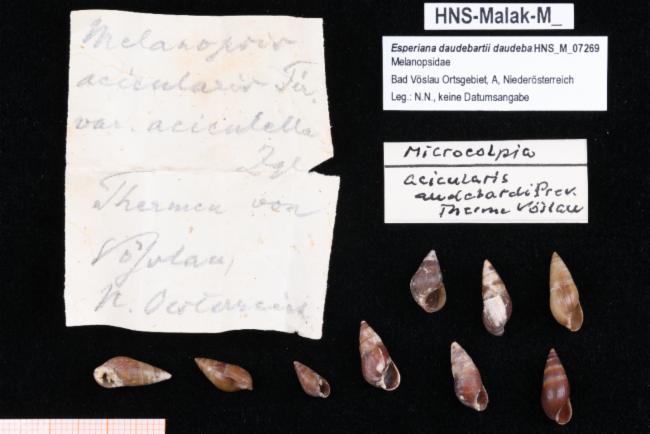 Melanopsis
acicularis Fér.
var. acicutella
Zgl.
Thermen von
Vöslau,
N. Oesterreich
HNS-Malak-M_
Esperiana daudebartii daudeba HNS_M_07269
Melanopsidae
Bad Vöslau Ortsgebiet, A, Niederösterreich
Leg.: N.N., keine Datumsangabe
Microcolpia
acicularis
audebardi Prev.
Therme Vöslau